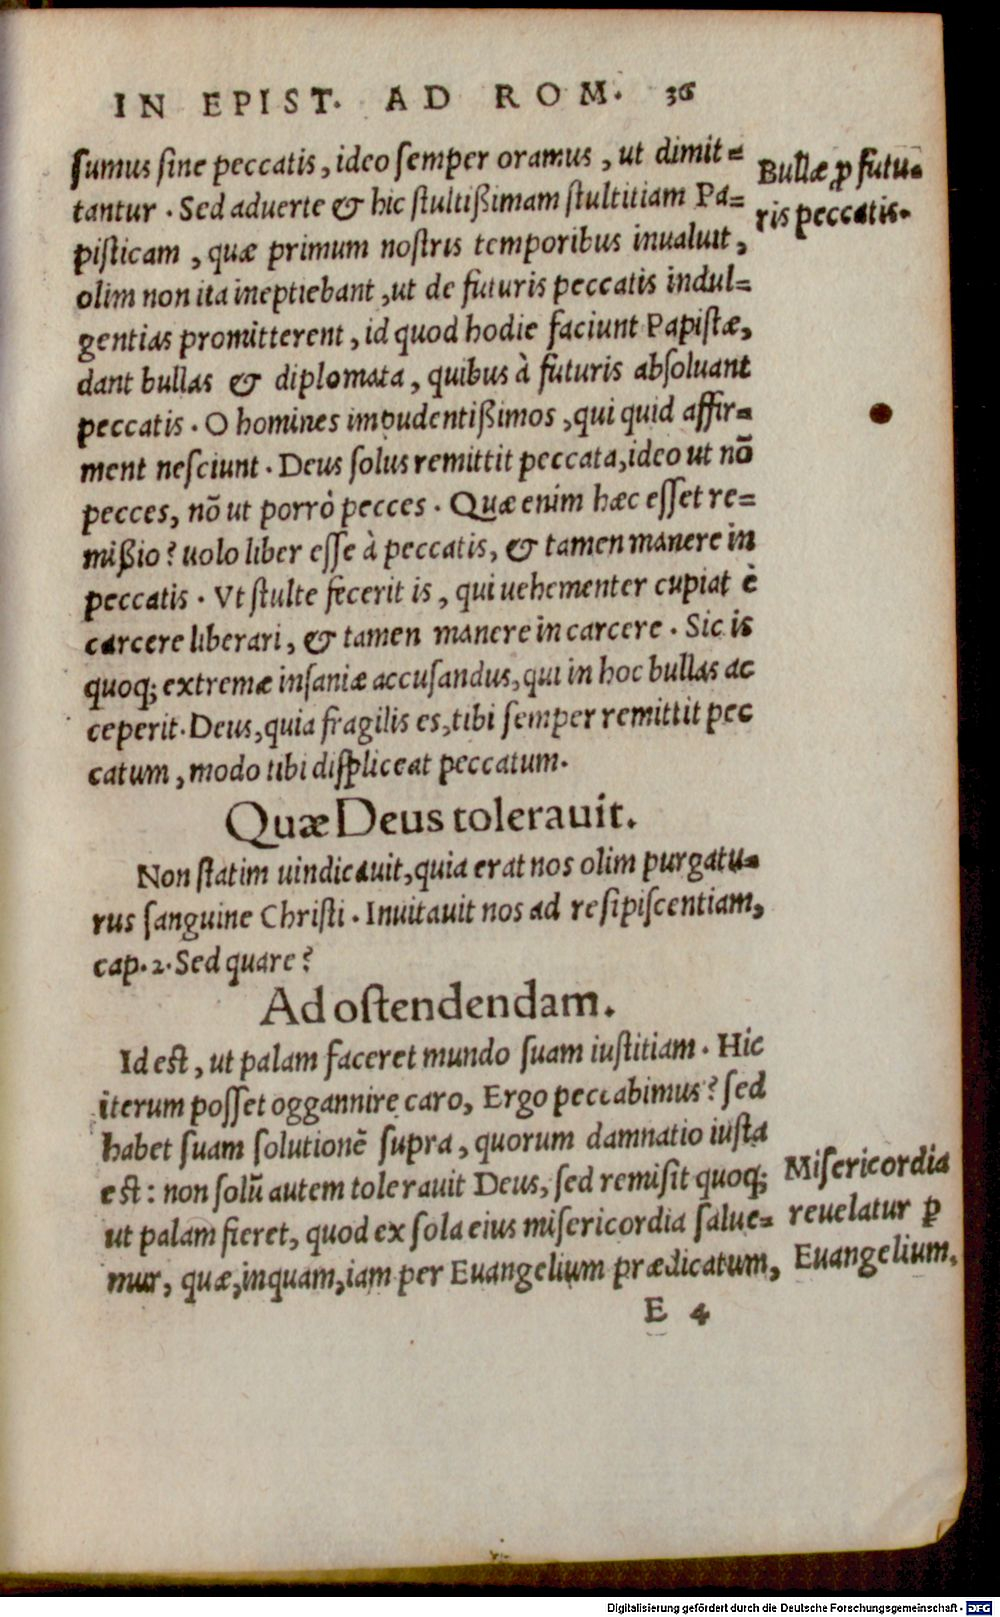 IN EPIST. AD ROM. 36
sumus sine peccatis, ideo semper oramus, ut dimit=
tantur. Sed aduerte & hic stultißimam stultitiam Pa=
pisticam, quæ primum nostris temporibus inualuit,
olim non ita ineptiebant, ut de futuris peccatis indul=
gentias promitterent, id quod hodie faciunt Papistæ,
dant bullas & diplomata, quibus à futuris absoluant
peccatis. O homines impudentißimos, qui quid affir=
ment nesciunt. Deus solus remittit peccata, ideo ut nō
pecces, nō ut porrò pecces. Quæ enim hæc esset re=
mißio? uolo liber esse à peccatis, & tamen manere in
peccatis. Vt stulte fecerit is, qui uehementer cupiat è
carcere liberari, & tamen manere in carcere. Sic is
quoq; extremæ insaniæ accusandus, qui in hoc bullas ac
ceperit. Deus, quia fragilis es, tibi semper remittit pec
catum, modo tibi displiceat peccatum.
Bullæ ꝓ futu=
ris peccatis.
Quæ Deus tolerauit.
Non statim uindicauit, quia erat nos olim purgatu=
rus sanguine Christi. Inuitauit nos ad resipiscentiam,
cap. 2. Sed quare?
Ad ostendendam.
Id est, ut palam faceret mundo suam iustitiam. Hic
iterum posset oggannire caro, Ergo peccabimus? sed
habet suam solutionē supra, quorum damnatio iusta
est: non solū autem tolerauit Deus, sed remisit quoq;
ut palam fieret, quod ex sola eius misericordia salue=
mur, quæ, inquam, iam per Euangelium prædicatum,
Misericordia
reuelatur ꝑ
Euangelium.
E 4
Digitalisierung gefördert durch die Deutsche Forschungsgemeinschaft - DFG